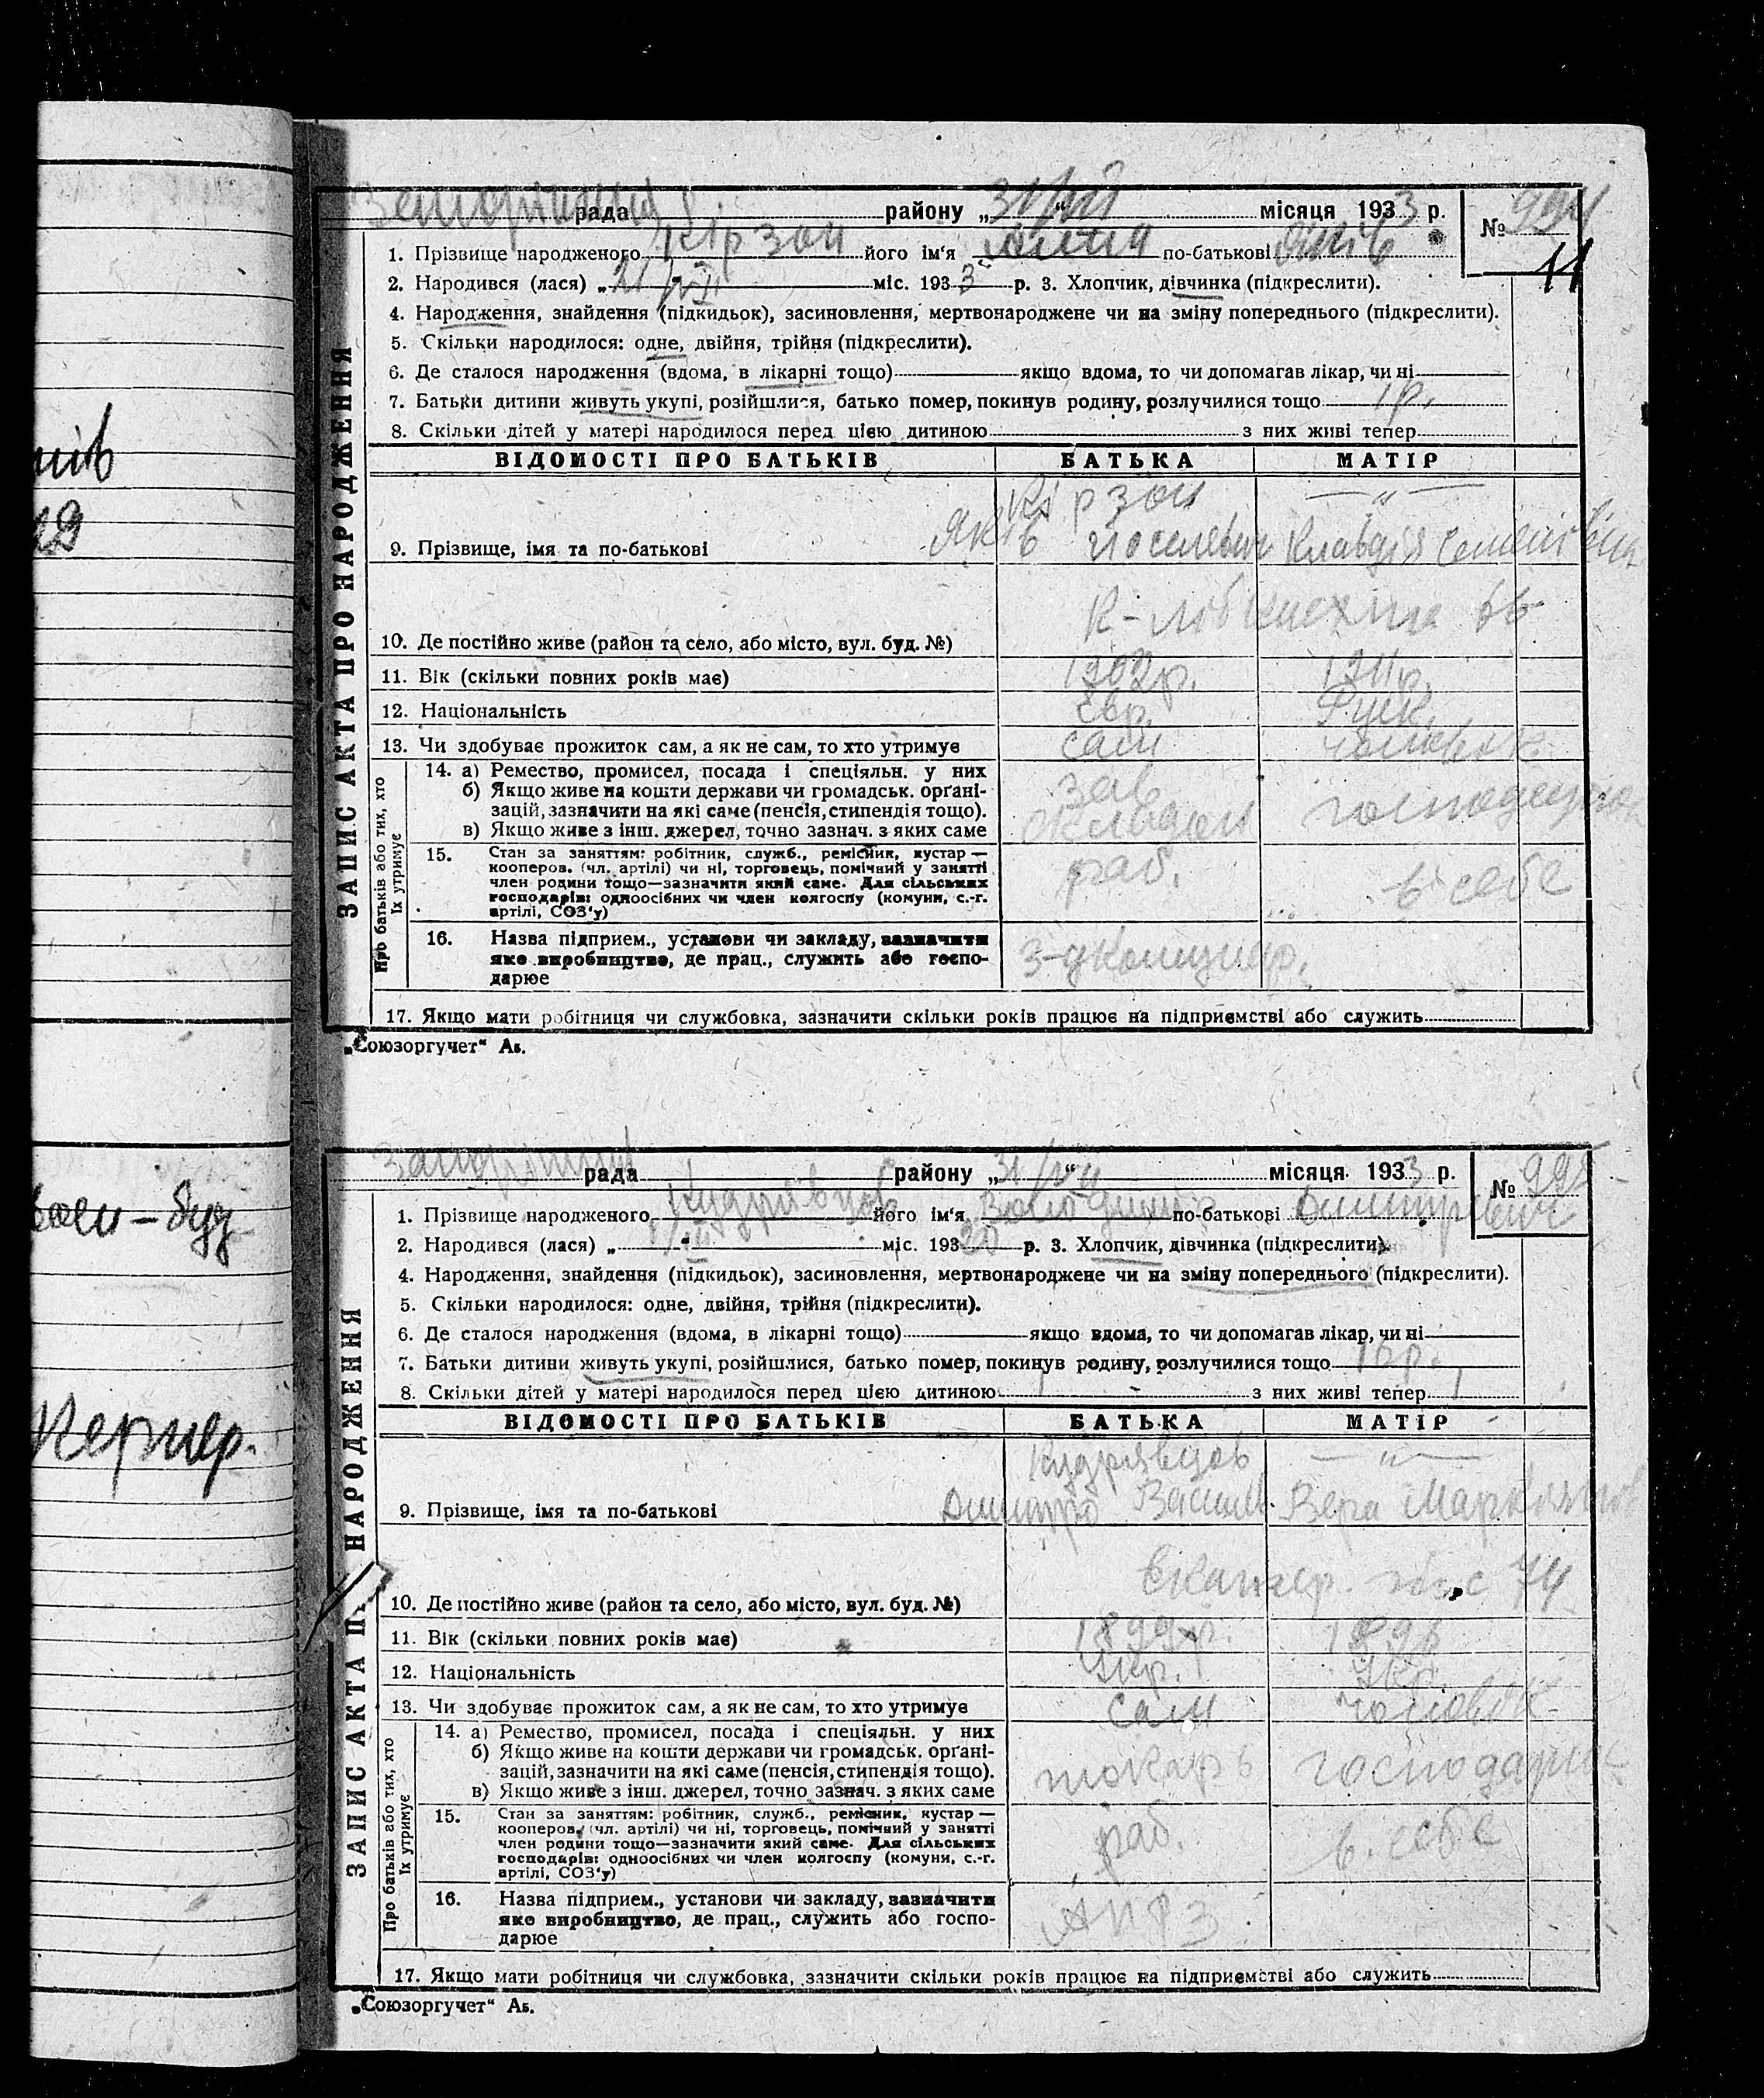 рада району „31/VII“ місяця 1933 р. № 994
11
1. Прізвище народженого Кірзон його ім‘я по-батькові
2. Народився (лася) „21/VII міс. 1933 р. 3. Хлопчик, дівчинка (підкреслити).
4. Народження, знайдення (підкидьок), засиновлення, мертвонароджене чи на зміну попереднього (підкреслити).
5. Скільки народилося: одне, двійня, трійня (підкреслити).
6. Де сталося народження (вдома, в лікарні тощо) якщо вдома, то чи допомагав лікар, чи ні
7. Батьки дитини живуть укупі, розійшлися, батько помер, покинув родину, розлучилися тощо 1 р.
8. Скільки дітей у матері народилося перед цією дитиною з них живі тепер
ЗАПИС АКТА ПРО НАРОДЖЕННЯ
ВІДОМОСТІ ПРО БАТЬКІВ БАТЬКА МАТІР
Кірзон — „ —
9. Прізвище, імя та по-батькові Яків Йоселевич Клавдія Семенівна
10. Де постійно живе (район та село, або місто, вул. буд. №) К-Лібкнехта 66
11. Вік (скільки повних років має) 1902р. 1911р.
12. Національність Євр. Руск.
13. Чи здобуває прожиток сам, а як не сам, то хто утримує сам чоловік
Про батьків або тих, хто їх утримує
14. а) Ремество, промисел, посада і спеціяльн. у них
б) Якщо живе на кошти держави чи громадськ. орґані-
зацій, зазначити на які саме (пенсія, стипендія тощо).
в) Якщо живе з інш. джерел, точно зазнач. з яких саме
зав
складом
15. Стан за заняттям: робітник, служб., ремісник, кустар —
кооперов. (чл. артілі) чи ні, торговець, помічний у занятті
член родини тощо—зазначити який саме. Для сільських
господарів: одноосібних чи член колгоспу (комуни, с.-г.
артілі, СОЗ‘у)
раб. в себе
16. Назва підприєм., установи чи закладу, зазначити
яке виробництво, де прац., служить або госпо-
дарює
17. Якщо мати робітниця чи службовка, зазначити скільки років працює на підприємстві або служить
„Союзоргучет“ Аб.
рада району „31/VII“ місяця 1933 р. №
1. Прізвище народженого Кудрявцов його ім‘я Володимир по-батькові Дмитрович
2. Народився (лася) „ “ міс. 193 р. 3. Хлопчик, дівчинка (підкреслити).
4. Народження, знайдення (підкидьок), засиновлення, мертвонароджене чи на зміну попереднього (підкреслити).
5. Скільки народилося: одне, двійня, трійня (підкреслити).
6. Де сталося народження (вдома, в лікарні тощо) якщо вдома, то чи допомагав лікар, чи ні
7. Батьки дитини живуть укупі, розійшлися, батько помер, покинув родину, розлучилися тощо
8. Скільки дітей у матері народилося перед цією дитиною з них живі тепер 1
ЗАПИС АКТА П НАРОДЖЕННЯ
ВІДОМОСТІ ПРО БАТЬКІВ БАТЬКА МАТІР
Кудрявцов — „ —
9. Прізвище, імя та по-батькові Дмитро Василь. Вера
10. Де постійно живе (район та село, або місто, вул. буд. №) 74
11. Вік (скільки повних років має) 1899р.
12. Національність Укр. Укр.
13. Чи здобуває прожиток сам, а як не сам, то хто утримує сам чоловік
Про батьків або тих, хто їх утримує
14. а) Ремество, промисел, посада і спеціяльн. у них
б) Якщо живе на кошти держави чи громадськ. орґані-
зацій, зазначити на які саме (пенсія, стипендія тощо).
в) Якщо живе з інш. джерел, точно зазнач. з яких саме
токарь
15. Стан за заняттям: робітник, служб., ремісник, кустар —
кооперов. (чл. артілі) чи ні, торговець, помічний у занятті
член родини тощо—зазначити який саме. Для сільських
господарів: одноосібних чи член колгоспу (комуни, с.-г.
артілі, СОЗ‘у)
раб. в. себе
16. Назва підприєм., установи чи закладу, зазначити
яке виробництво, де прац., служить або госпо-
дарює
17. Якщо мати робітниця чи службовка, зазначити скільки років працює на підприємстві або служить
„Союзоргучет“ Аб.